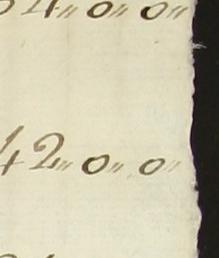 4〃 0〃 0〃
42〃 0〃 0〃